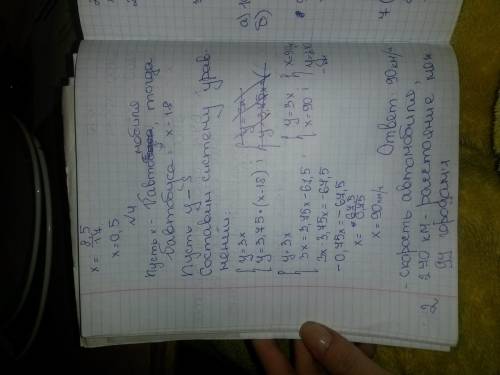 x = 8,5/17
x = 0,5
№4
Пусть x - Vавтомобиля, тогда
Vавтобуса = x - 18
Пусть y - S
Составим систему урав-
нений:
{ y = 3x
y = 3,75 · (x - 18) ;
{ y = 3x
3x = 3,75x - 67,5 ;
{ y = 3x
x = 90 ;
3x - 3,75x = -67,5
-0,75x = -67,5
x = 67,5/0,75
x = 90 км/ч
Ответ: 90 км/ч
- скорость автомобиля,
270 км - расстояние меж
ду городами
2
а)
б)
7 (